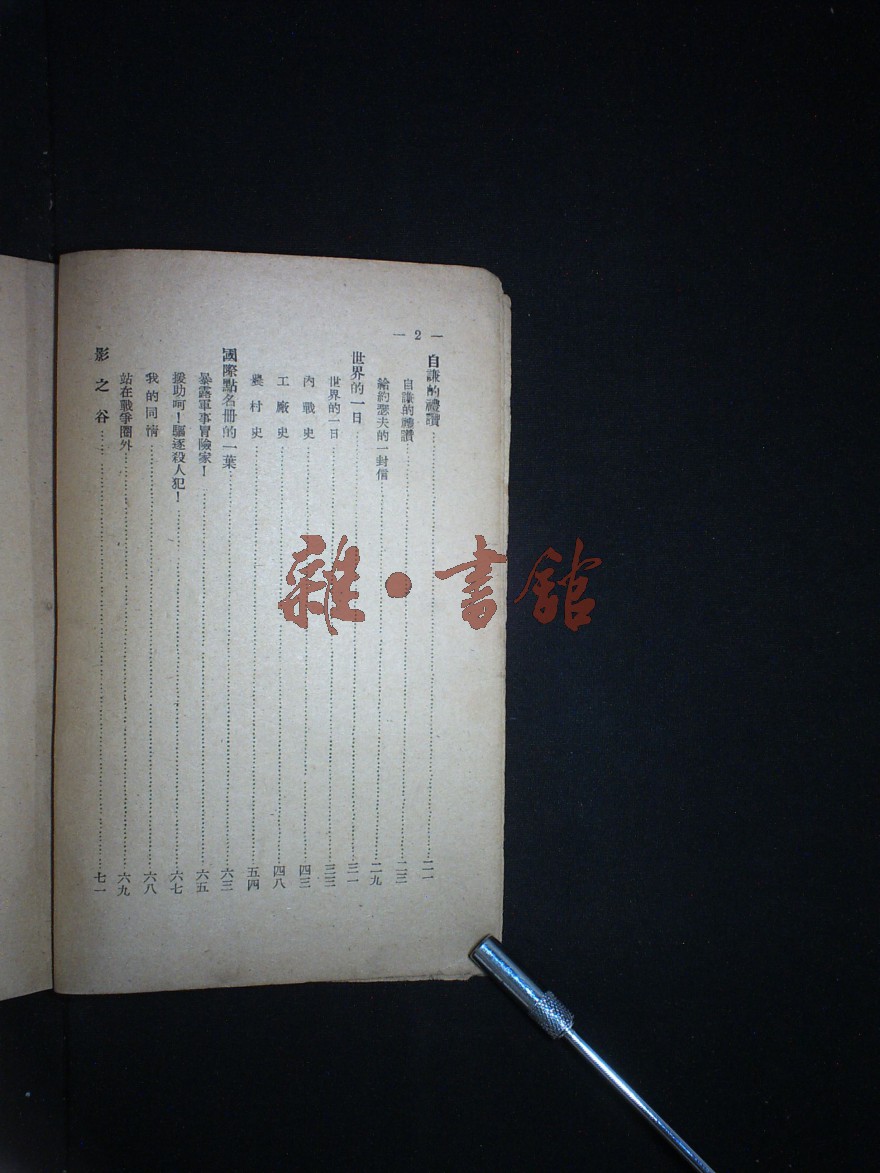 — 2 —
自謙的禮讚……二一
自謙的禮讚……二三
給約瑟夫的一封信……二九
世界的一日……三一
世界的一日……三三
內戰史……四三
工廠史……四八
農村史……五四
國際點名冊的一葉……六三
暴露軍事冒險家！……六五
援助呵！驅逐殺人犯！……六七
我的同情……六八
站在戰爭圈外……六九
影之谷……七一
雜·書館